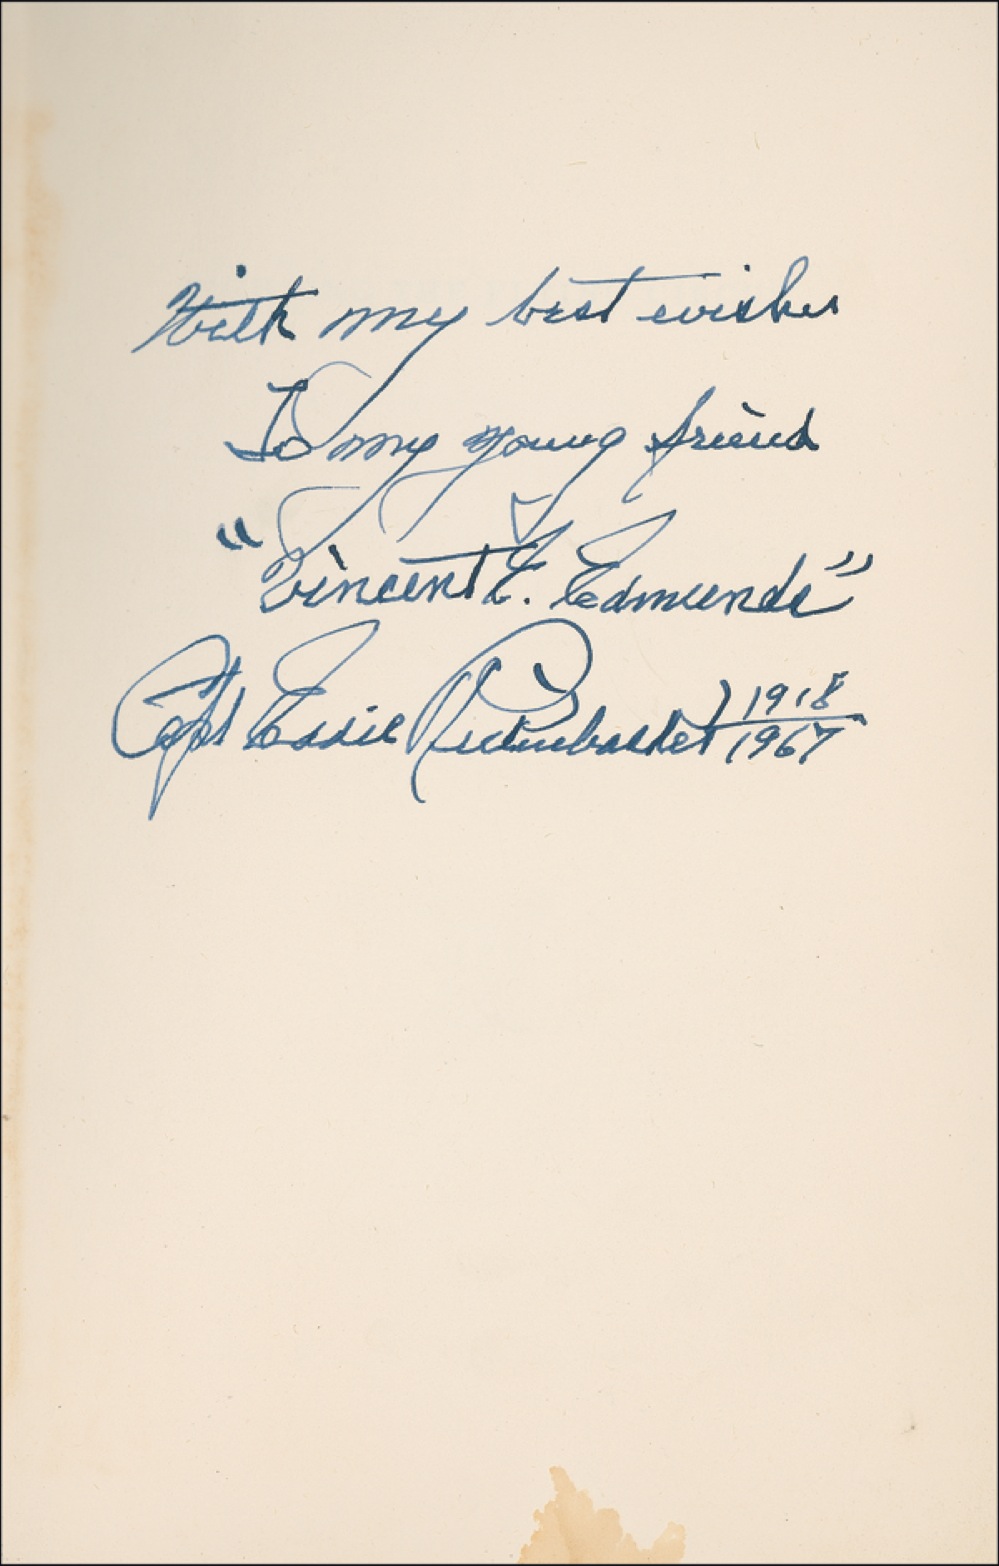 With my best wishes
To my young friend
"Vincent E. Edmunds"
Capt Eddie Rickenbacker 1918
1967